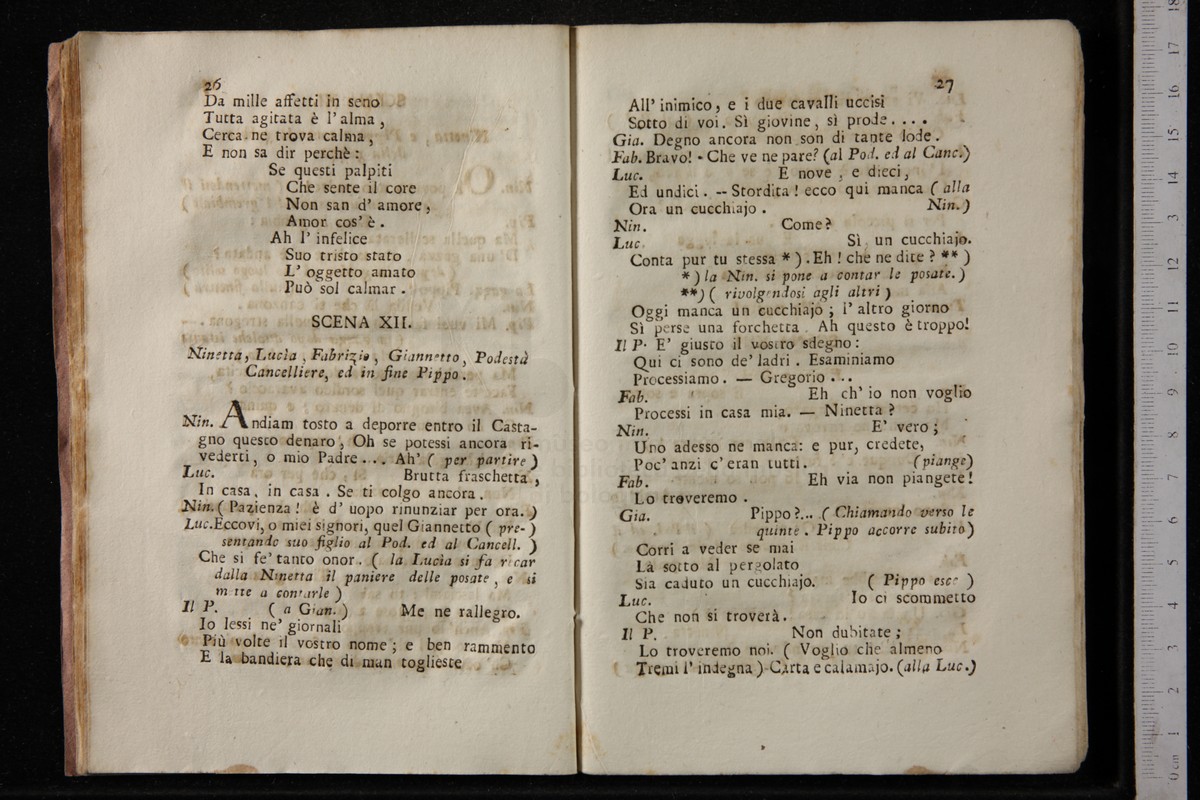 26
Da mille affetti in seno
Tutta agitata è l' alma,
Cerca ne trova calma,
E non sa dir perchè:
Se questi palpiti
Che sente il core
Non san d' amore,
Amor cos' è.
Ah l' infelice
Suo tristo stato
L' oggetto amato
Può sol calmar.
SCENA XII.
Ninetta, Lucìa, Fabrizio, Giannetto, Podestà
Cancelliere, ed in fine Pippo.
Nin. Andiam tosto a deporre entro il Casta-
gno questo denaro, Oh se potessi ancora ri-
vederti, o mio Padre.... Ah' ( per partire )
Luc. Brutta fraschetta,
In casa, in casa. Se ti colgo ancora.
Nin. ( Pazienza! è d' uopo rinunziar per ora. )
Luc. Eccovi, o miei signori, quel Giannetto ( pre- )
sentando suo figlio al Pod. ed al Cancell. )
Che si fe' tanto onor. ( la Lucìa si fa recar
dalla Ninetta il paniere delle posate, e si
mette a contarle )
Il P. ( a Gian. ) Me ne rallegro.
Io lessi ne' giornali
Più volte il vostro nome; e ben rammento
E la bandiera che di man toglieste
27
All' inimico, e i due cavalli uccisi
Sotto di voi. Sì giovine, sì prode....
Gia. Degno ancora non son di tante lode.
Fab. Bravo! - Che ve ne pare? (al Pod. ed al Canc.)
Luc. E nove, e dieci,
Ed undici. -- Stordita! ecco qui manca ( alla
Ora un cucchiajo. Nin.)
Nin. Come?
Luc. Sì, un cucchiajo.
Conta pur tu stessa * ). Eh! che ne dite? ** )
*) la Nin. si pone a contar le posate.)
**) ( rivolgendosi agli altri )
Oggi manca un cucchiajo; l' altro giorno
Sì perse una forchetta. Ah questo è troppo!
Il P. E' giusto il vostro sdegno:
Qui ci sono de' ladri. Esaminiamo
Processiamo. — Gregorio...
Fab. Eh ch' io non voglio
Processi in casa mia. — Ninetta?
Nin. E' vero;
Uno adesso ne manca: e pur, credete,
Poc' anzi c' eran tutti. (piange)
Fab. Eh via non piangete!
Lo troveremo.
Gia. Pippo?... ( Chiamando verso le
quinte. Pippo accorre subito)
Corri a veder se mai
Là sotto al pergolato
Sia caduto un cucchiajo. ( Pippo esce )
Luc. Io ci scommetto
Che non si troverà.
Il P. Non dubitate;
Lo troveremo noi. ( Voglio che almeno
Tremi l' indegna ) Carta e calamajo. (alla Luc.)